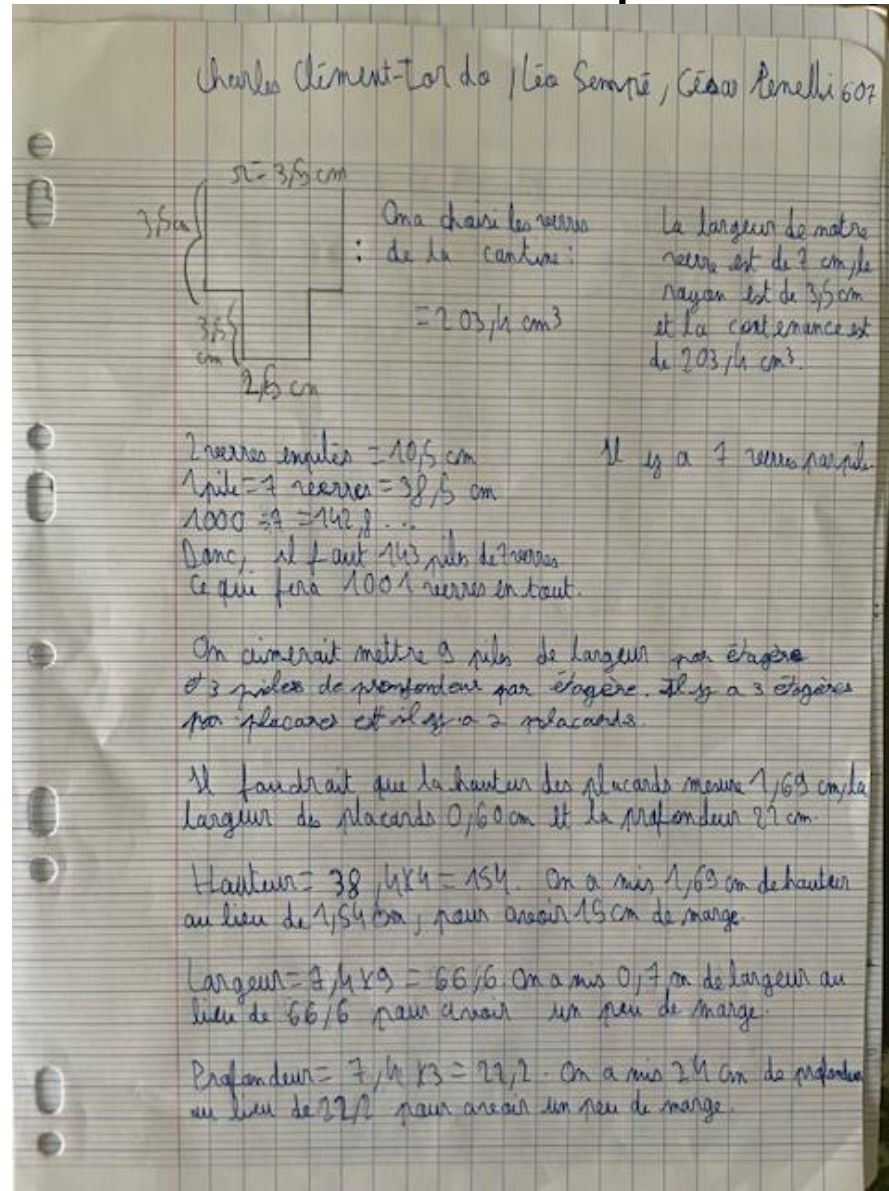 Charles Clément-Tor do / Léo Sempé, César Penelli 607
r = 3,5 cm
3,5 cm
3,5 cm
2,5 cm
Ona choisi les verres
: de la cantine :
= 203,4 cm³
La largeur de notre
verre est de 7 cm, le
rayon est de 3,5 cm
et la contenance est
de 203,4 cm³.
2 verres empilés = 10,5 cm
Il y a 7 verres par pile.
1 pile = 7 verres = 38,5 cm
1000 ÷ 7 = 142,8...
Donc, il faut 143 piles de 7 verres
Ce qui fera 1001 verres en tout.
On aimerait mettre 9 piles de largeur par étagère
et 3 piles de profondeur par étagère. Il y a 3 étagères
par placard et il y a 2 placards.
Il faudrait que la hauteur des placards mesure 1,69 cm, la
largeur des placards 0,60 cm et la profondeur 22 cm.
Hauteur = 38,4 x 4 = 154. On a mis 1,69 cm de hauteur
au lieu de 1,54 cm, pour avoir 15 cm de marge.
Largeur = 7,4 x 9 = 66,6. On a mis 0,7 m de largeur au
lieu de 66,6 pour avoir un peu de marge.
Profondeur = 7,4 x 3 = 22,2. On a mis 24 cm de profondeur
au lieu de 22,2 pour avoir un peu de marge.